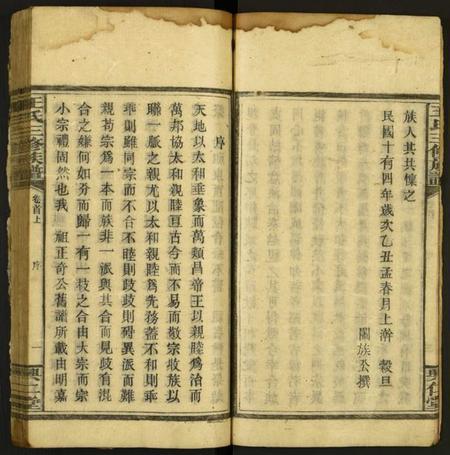 族人其共慎之
民國十有四年歲次乙丑孟春月上澣 穀旦
闔族公撰
王氏三修族譜
序
天地以太和垂象而萬類昌帝王以親睦爲治而
萬邦協太和親睦亘古今而不易而敬宗收族以
聯一脈之親尤以太和親睦爲先務蓋不和則乖
乖則雖同宗而不合不睦則歧歧則
異派而難
親苟宗爲一本而族非一派與其合而見歧有混
合之嫌何如分而歸一有一枝之合由大宗而宗
小宗禮固然也我 祖正奇公舊譜所載由明嘉
王氏三修族譜
卷首上
序
一